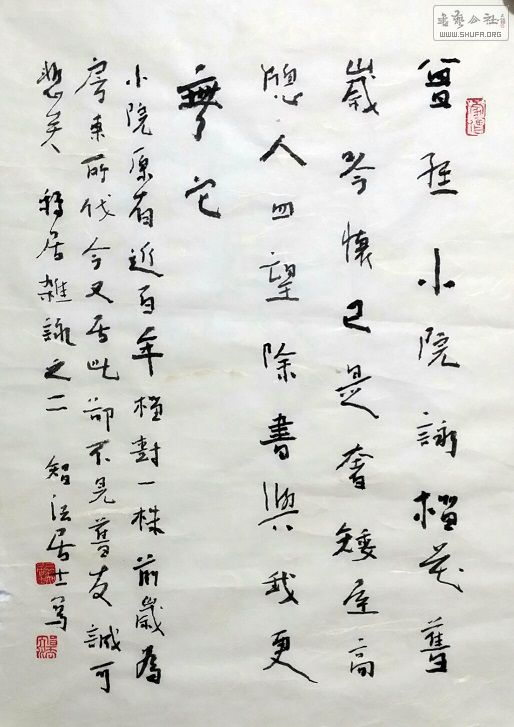 书艺公社
WWW.SHUFA.ORG
曾經小院詠榴花舊
歲吟懷已是奢矮屋高
牕人四望除書與我更
無它
小院原有近百年榴樹一株前歲為
房東所伐今又居此卻不見舊友誠可
悲矣移居雜詠之二智法居士寫